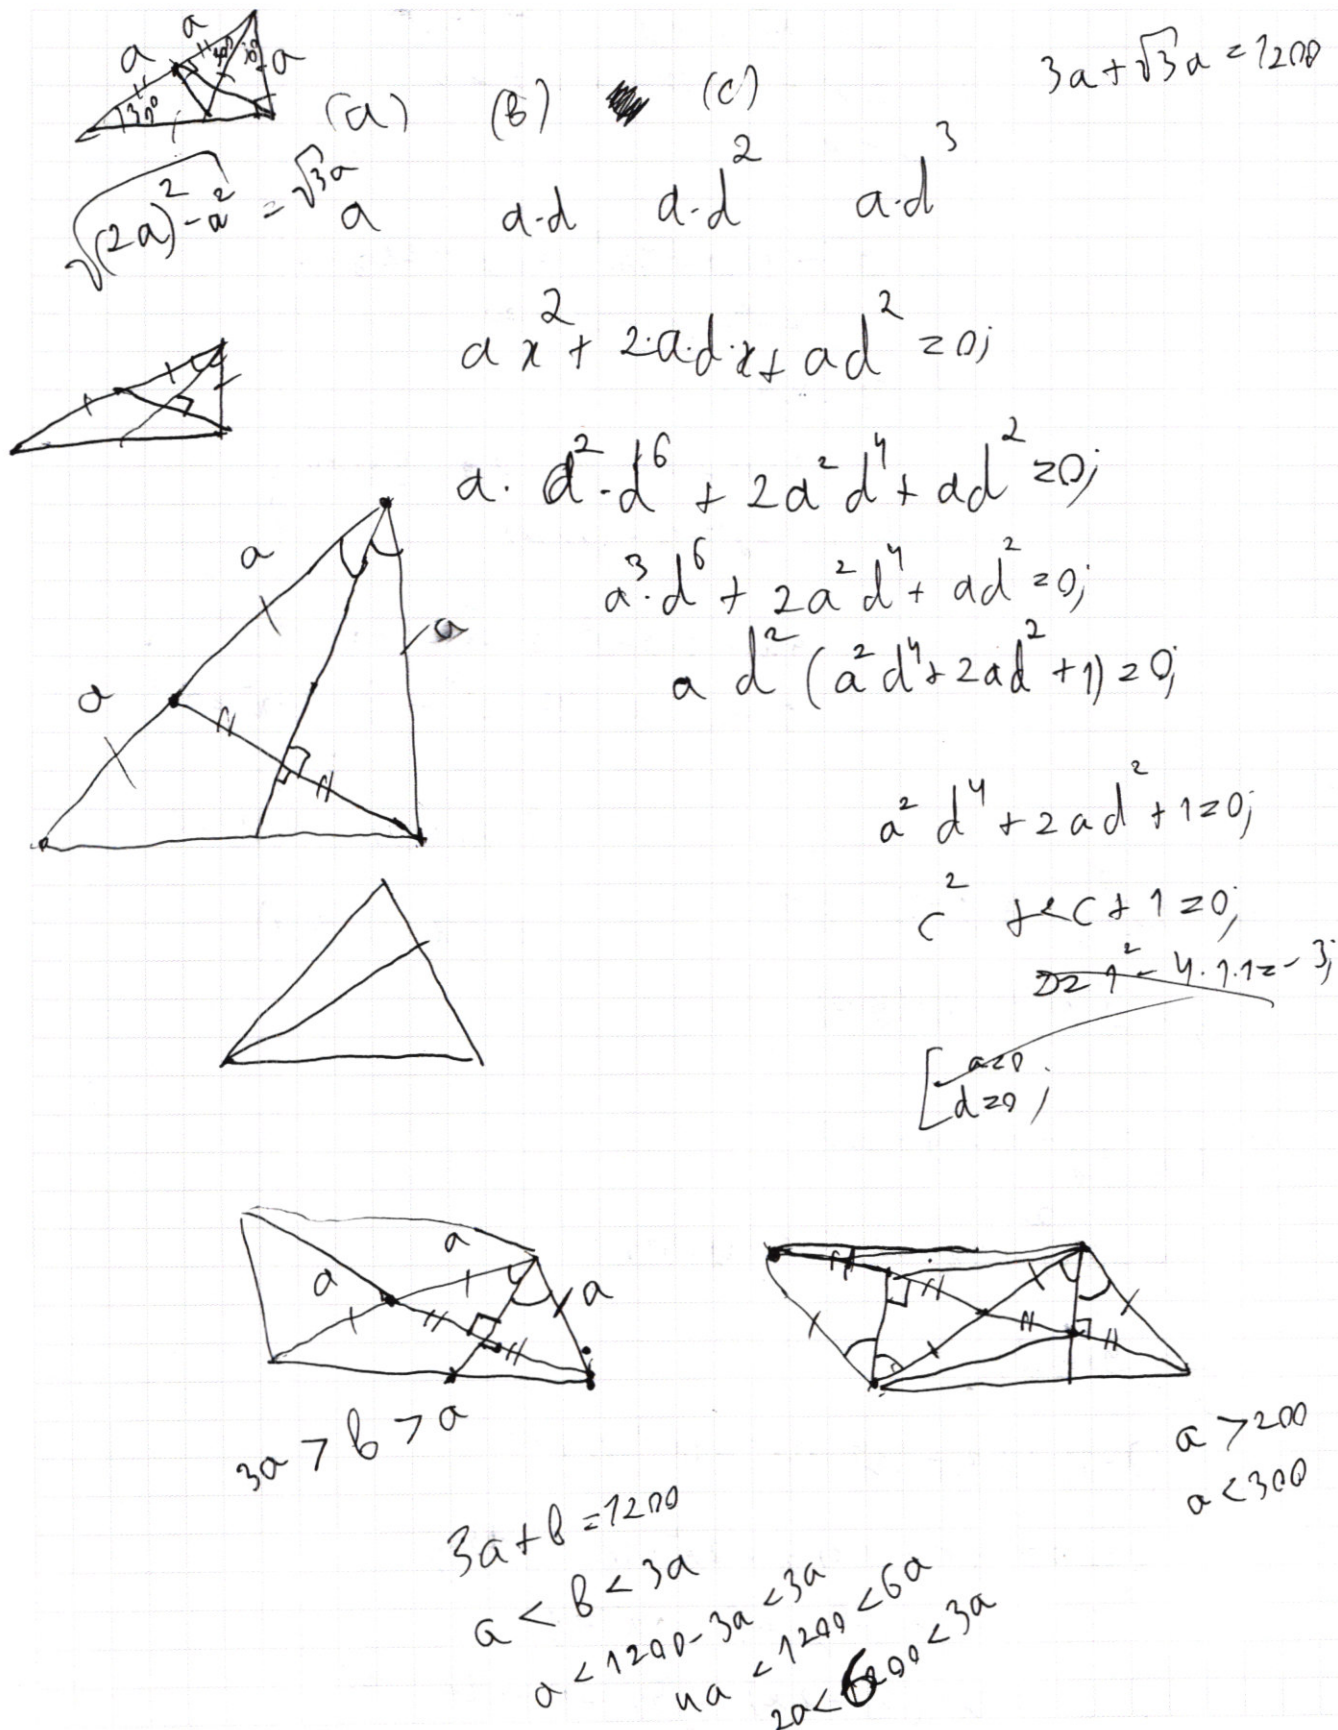 a
a
a
30°
30°
3a+√3a=1200
(a) (b) (c)
√((2a)²-a²) = √3a
a a·d a·d² a·d³
ax²+2·a·d·x+ad²=0;
a·d²·d⁶+2a²d⁴+ad²=0;
a³·d⁶+2a²d⁴+ad²=0;
a
a
a
ad²(a²d⁴+2ad²+1)=0;
a²d⁴+2ad²+1=0;
c²+2c+1=0;
D=1²-4·1·1=-3;
[a=0
d=0;
a
a
a
3a>b>a
a>200
a<300
3a+b=1200
a<b<3a
a<1200-3a<3a
4a<1200<6a
2a<600<3a